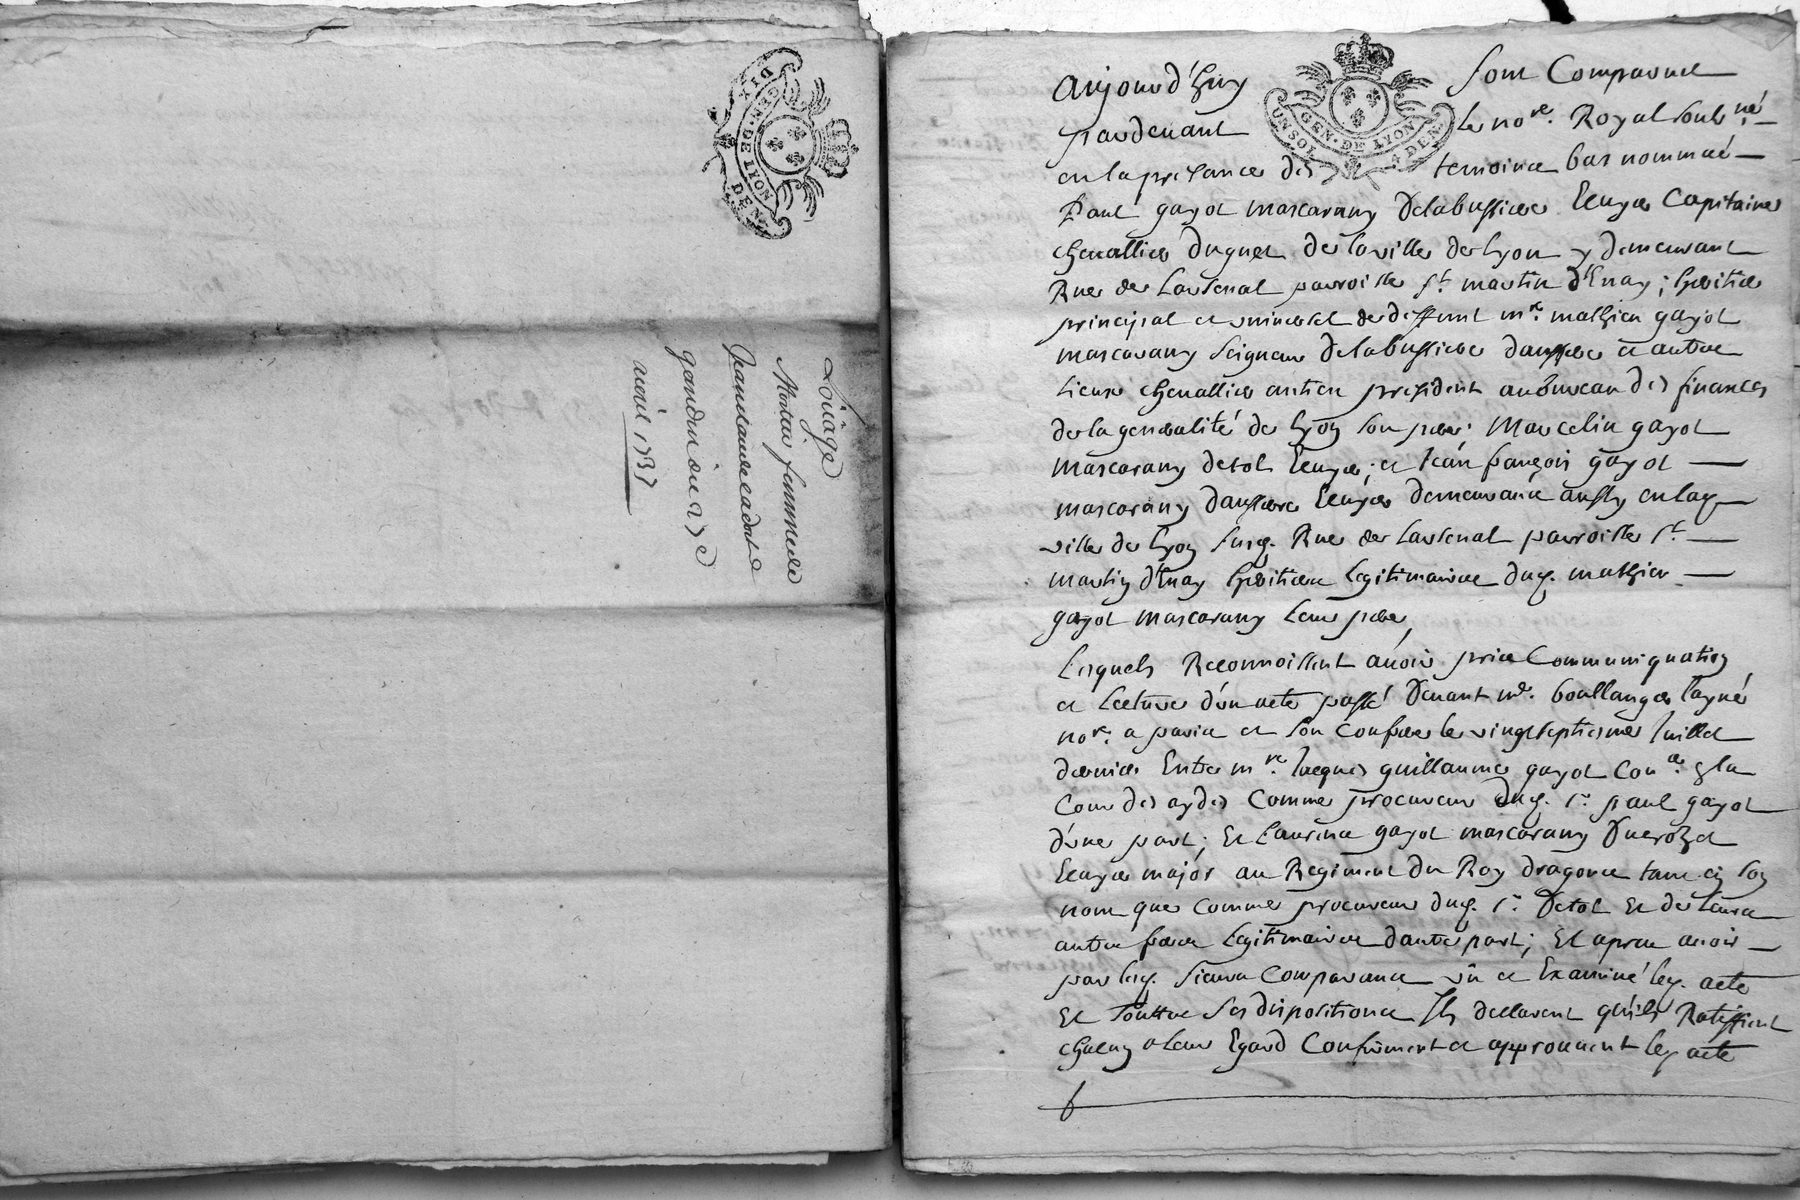 DIX
GEN. DE LYON
DEN.
Liéage
femme de
Jean claude
avril 1737
UN SOL
GEN. DE LYON
4 DEN.
Aujourd'huy sont Comparus
pardevant Le no.re Royal soubs.né
en la presance des temoins bas nommés
Paul gayot mascarany Delabussiere Ecuyer Capitaine
chevallier du guet de la ville de Lyon y demeurant
Rue de Larsenal parroisse st. martin d'Enay; heritier
principal et universel de deffunt m.re mathieu gayot
mascarany seigneur Delabussiere dareste et autres
Lieux chevallier antien president au bureau des finances
de la generalité de Lyon son pere; Marcelin gayot
mascarany detol Ecuyer; et Jean françois gayot
mascarany Ecuyer demeurants aussy en lad.
ville de Lyon susd. Rue de Larsenal parroisse st.
martin d'Enay heritiers Legitimaires dud. mathieu
gayot mascarany Leur pere,
Lesquels Reconnoissent avoir pris Communiquation
et Lecture d'un acte passé devant m.e boullanger l'ayné
no.re a paris et son confrere le vingt septiesme Juillet
dernier Entre m.re Jacques guillaume gayot con.er en la
Cour des aydes Comme procureur dud. s.r paul gayot
d'une part; Et Laurins gayot mascarany
Ecuyer major au Regiment du Roy dragons tant en son
nom que comme procureur dud. s.r Detol Et de Leurs
autres freres Legitimaires d'autre part; Et apres avoir
par lesd. sieurs Comparants vû et Examiné led. acte
Et touttes ses dispositions Ils declarent qu'ils Ratiffient
chacun a leur Egard Confirment et approuvent led. acte